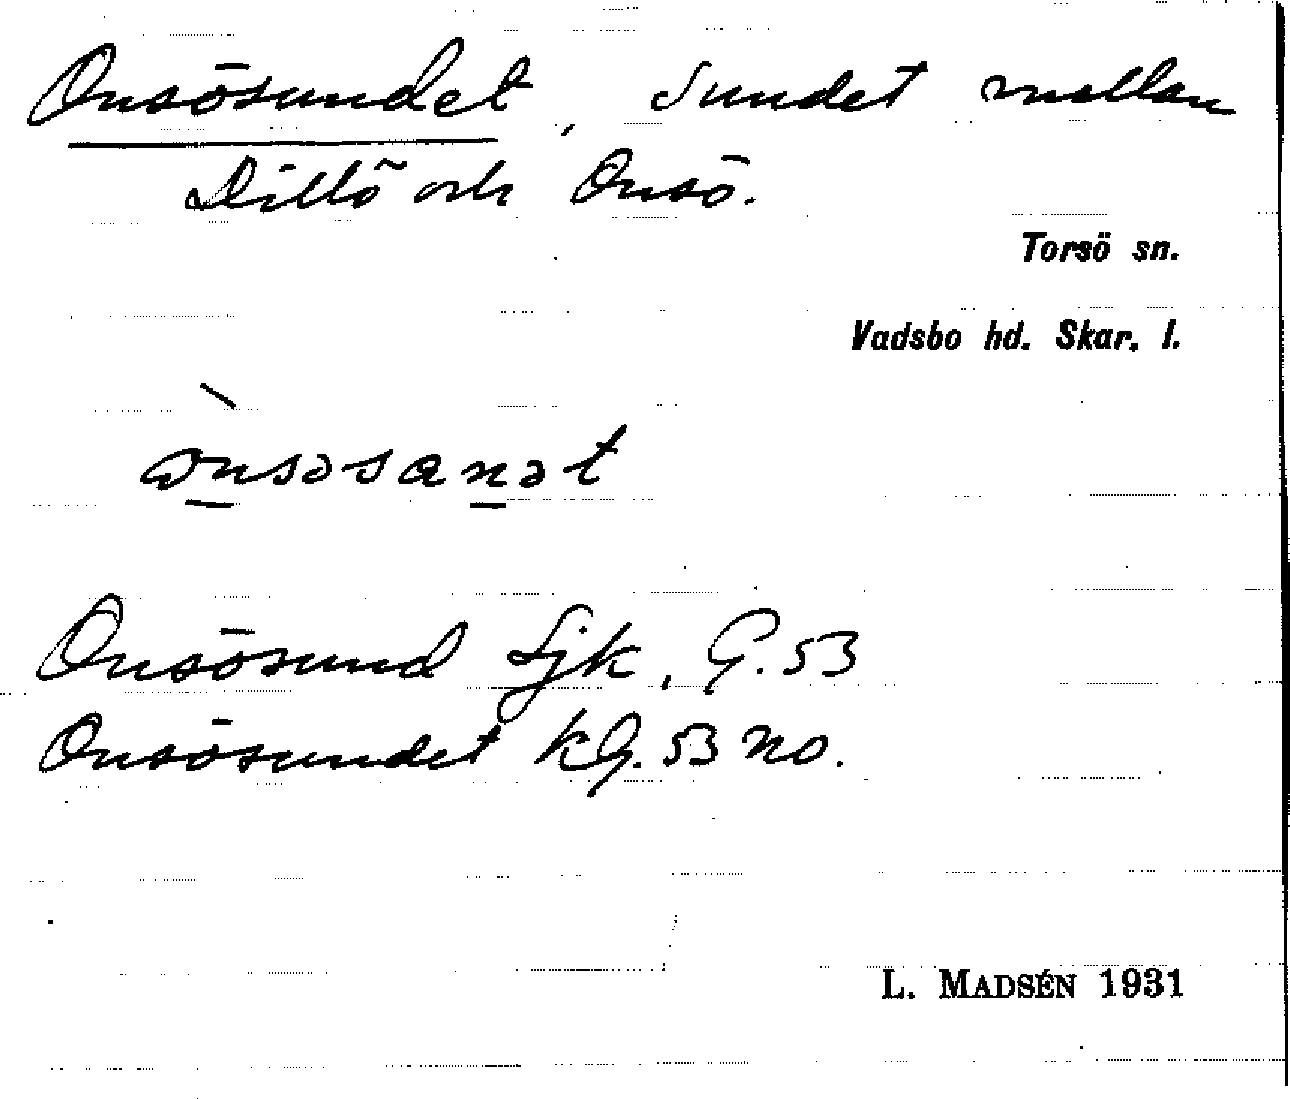 Onsösundet, Sundet mellan
Dillö och Onsö.
Torsö sn.
Vadsbo hd. Skar. l.
Onsösund Sjk, G. 53
Onsösundet kG. 53 NO.
L. MADSÉN 1931